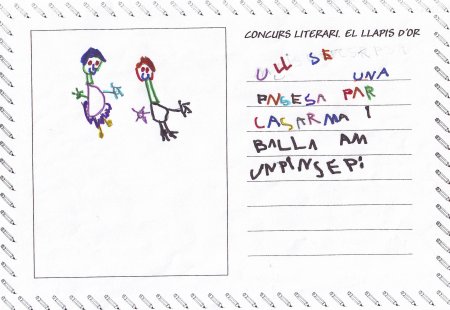 CONCURS LITERARI. EL LLAPIS D'OR
ULL SE
UNA
PNSESA PAR
CASARMA I
BALLA AM
UNPINSEPi